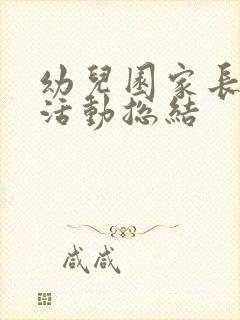 幼兒園家長
活動總結
咸咸